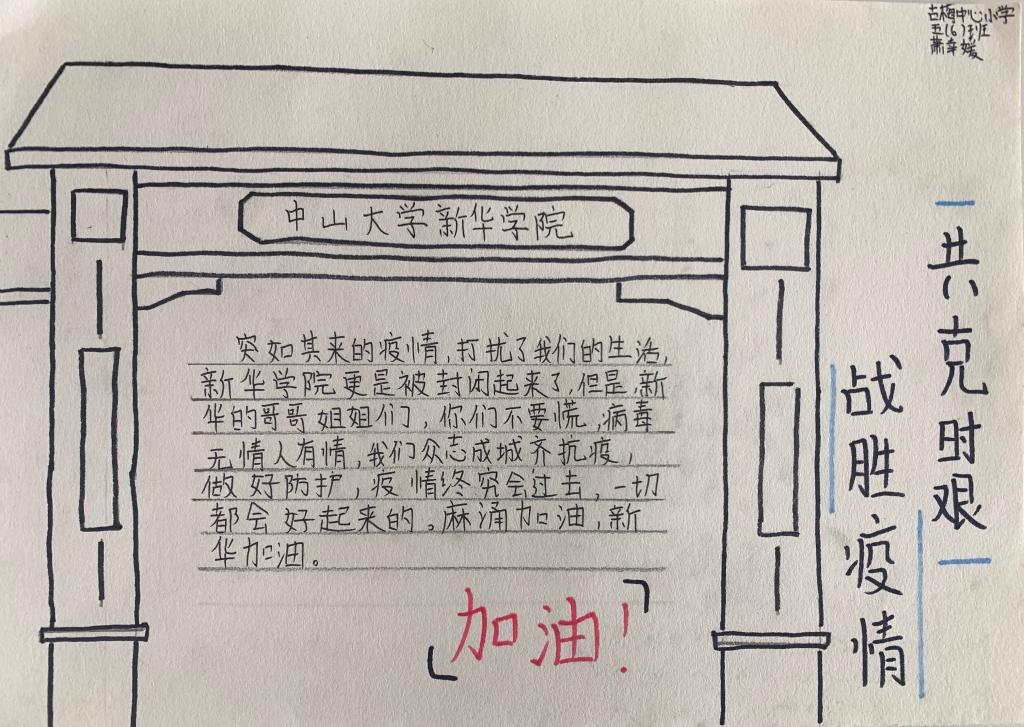 古梅中心小学
五(6)班
萧 媛
中山大学新华学院
突如其来的疫情,打扰了我们的生活,
新华学院更是被封闭起来了,但是,新
华的哥哥姐姐们,你们不要慌,病毒
无情人有情,我们众志成城齐抗疫,
做好防护,疫情终究会过去,一切
都会好起来的。麻涌加油,新
华加油。
「加油!」
共克时艰
战胜疫情